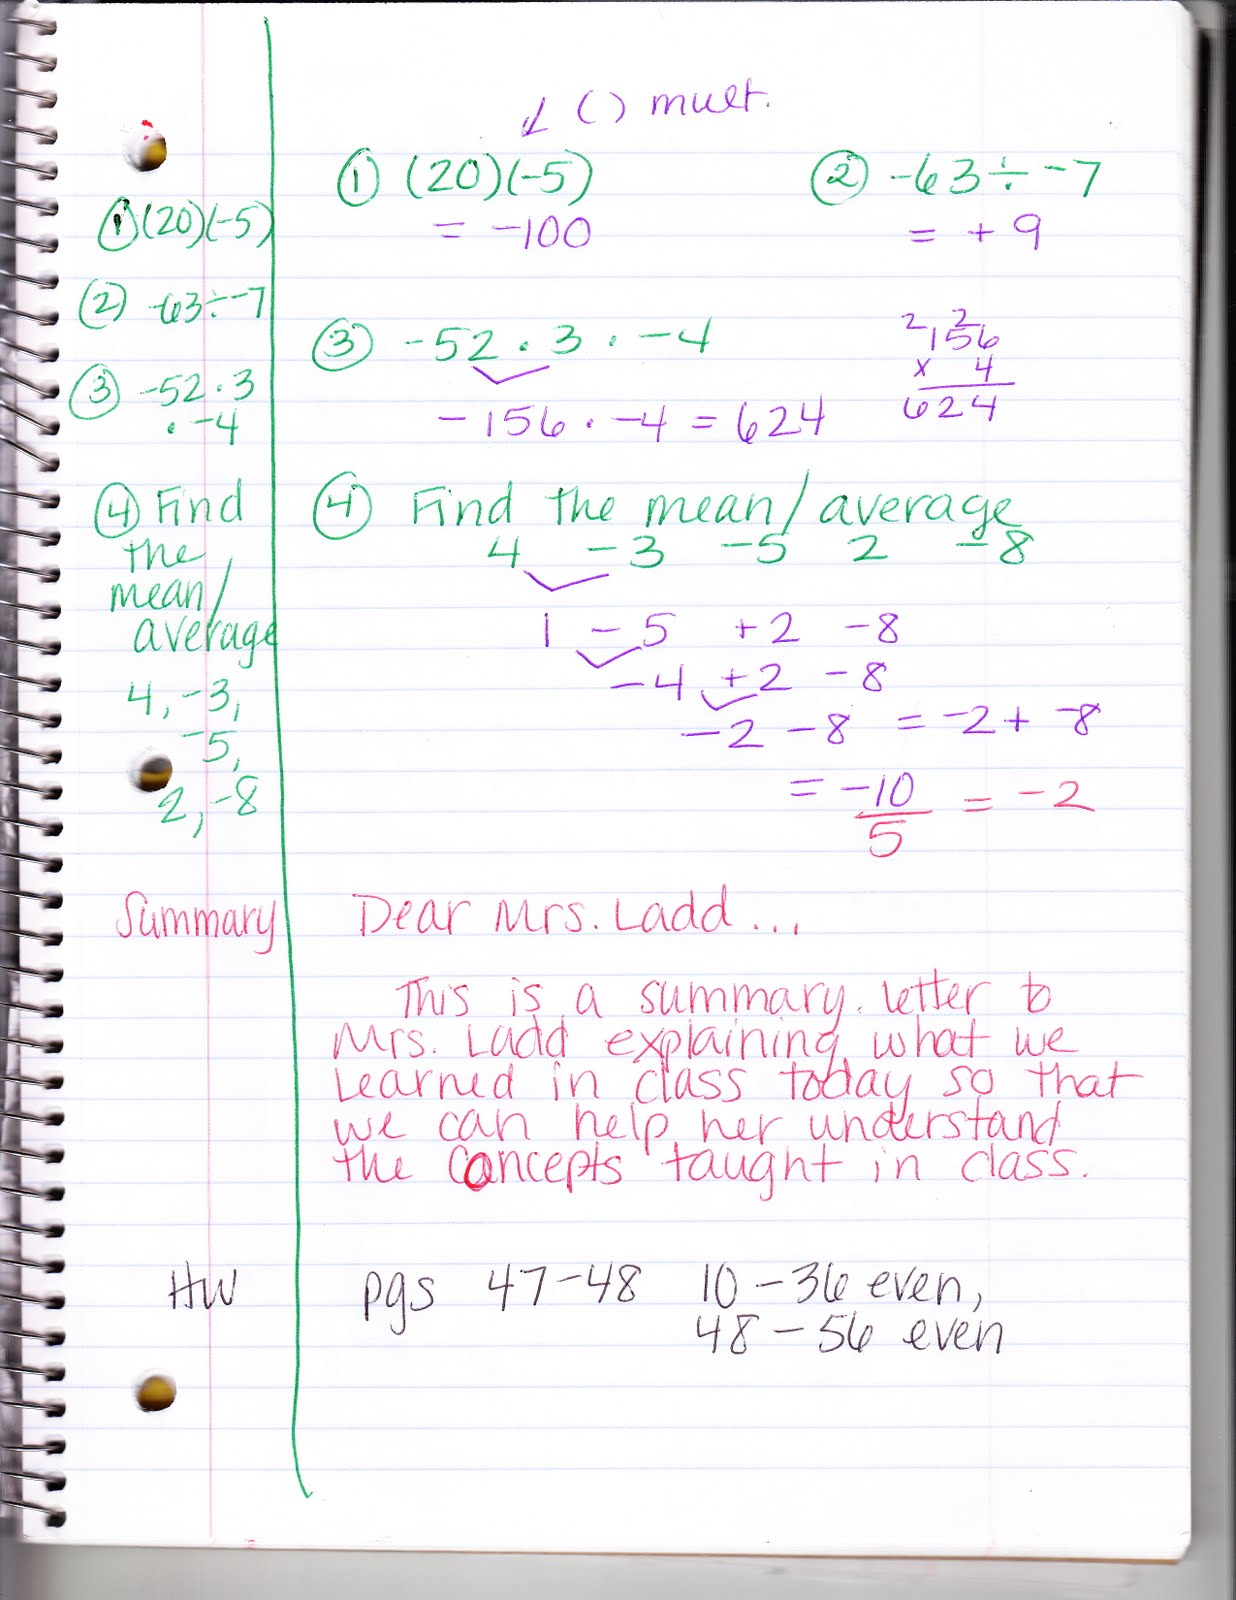 ↙ ( ) mult.
① (20)(-5)
② -63 ÷ -7
= -100
= +9
① (20)(-5)
② -63 ÷ -7
③ -52 · 3
· -4
③ -52 · 3 · -4
-156 · -4 = 624
2 2
156
x 4
624
④ Find
the
mean/
average
4, -3,
-5,
2, -8
④ Find the mean/average
4 -3 -5 2 -8
1 -5 +2 -8
-4 +2 -8
-2 -8 = -2 + -8
= -10 = -2
5
Summary
Dear Mrs. Ladd...
This is a summary letter to
Mrs. Ladd explaining what we
learned in class today so that
we can help her understand
the concepts taught in class.
HW
pgs 47-48 10-36 even,
48-56 even